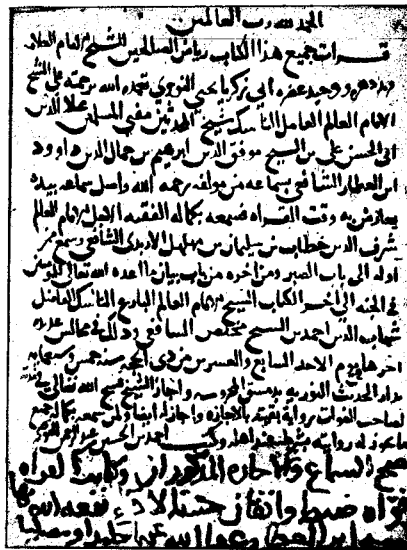 الحمد لله رب العالمين
قرات جميع هذا الكتاب رياض الصالحين للشيخ الامام العلامة
وحيد عصره ابي زكريا يحيى النووي تغمده الله برحمته على الشيخ
الامام العالم العامل الناسك شيخ المحدثين مفتي المسلمين علا الدين
ابي الحسن علي بن الشيخ موفق الدين ابرهيم بن جمال الدين داوود
ابن العطار الشافعي بسماعه من مولفه رحمه الله واصل سماعه بيده
يعارض به وقت القراه فسمعه بكماله الفقيه الامام العالم
شرف الدين خطاب بن سليمان بن مهلهل الاربدي الشافعي وسمع من
اوله الى باب الصبر ومن اخره من باب بيان ما اعده الله تعالى للمومنين
في الجنه الى اخر الكتاب الشيخ الامام العالم البارع الناسك الفاضل
شهاب الدين احمد بن الشيخ الشافعي وذلك في مجالس
اخرها يوم الاحد السابع والعشرين من ذي الحجه سنه خمس وسبعمايه
بدار الحديث النوريه بدمشق المحروسه واجاز الشيخ فسح الله تعالى في
لصاحب الفوات بروايه بقيته بالاجازه واجاز ايضا لمن سمعه بكماله جميع
ما يجوز له روايته بشرطه عند اهله وكتب احمد بن الحسين
صح السماع والاجازه المذكوران وكانت القراه
قراه ضبط واتقان حسنة الاداء نفعه الله بها
العطار عفا الله عنه حامدا ومصليا